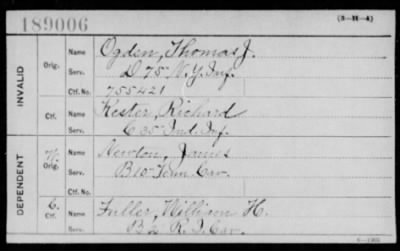 189006
(3-H-A)
INVALID
Orig.
Name Ogden, Thomas J.
Serv. D 75 N.Y. Inf.
Ctf. No. 755421
Ctf.
Name Kester, Richard
Serv. C 35 Ind. Inf.
DEPENDENT
Orig.
Name Newton, James
Serv. B 10 Tenn Cav.
Ctf. No.
Ctf.
Name Fuller, William H.
Serv. B 2 R. I. Cav.